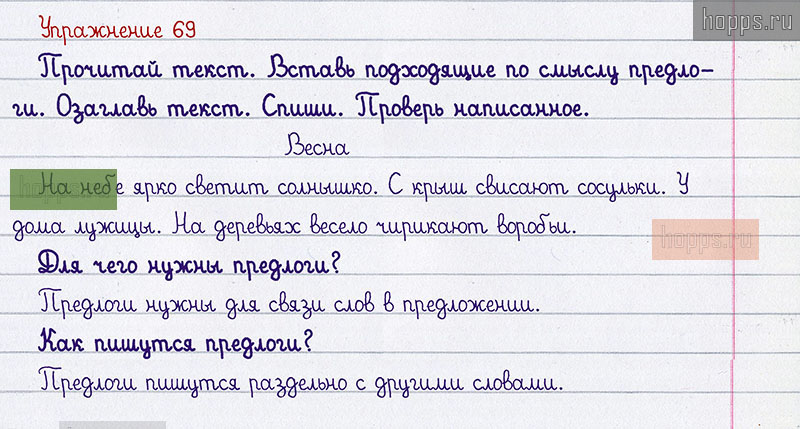 hopps.ru
Упражнение 69
Прочитай текст. Вставь подходящие по смыслу предло-
ги. Озаглавь текст. Спиши. Проверь написанное.
Весна
На небе ярко светит солнышко. С крыш свисают сосульки. У
дома лужицы. На деревьях весело чирикают воробьи.
hopps.ru
Для чего нужны предлоги?
Предлоги нужны для связи слов в предложении.
Как пишутся предлоги?
Предлоги пишутся раздельно с другими словами.